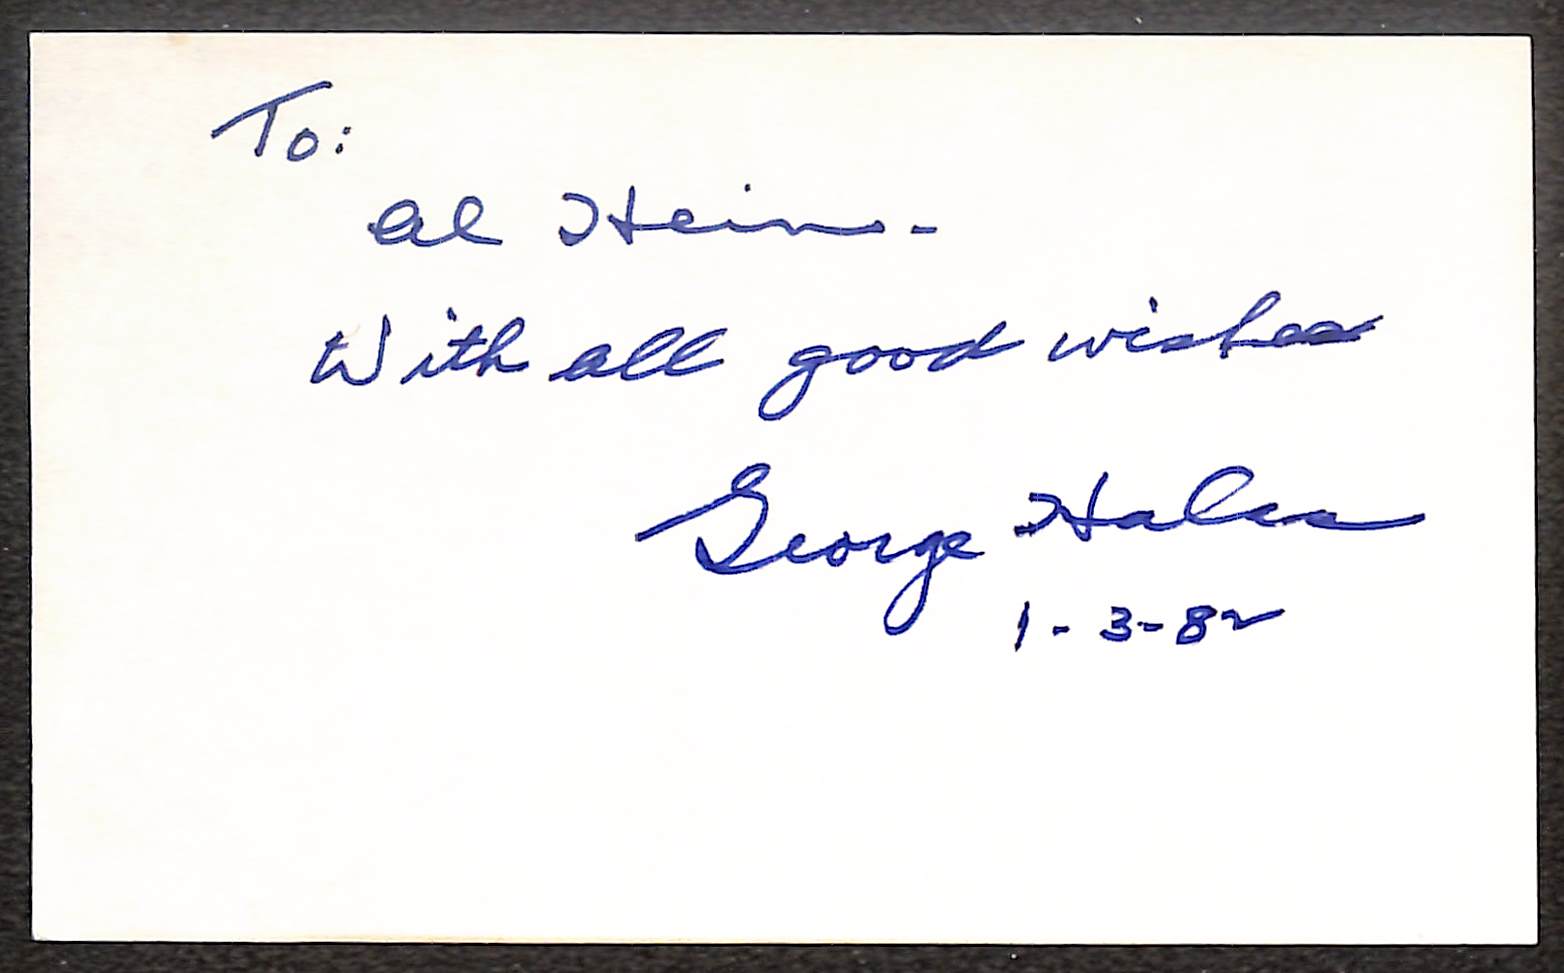 To:
Al Hein -
With all good wishes
George Halas
1-3-82